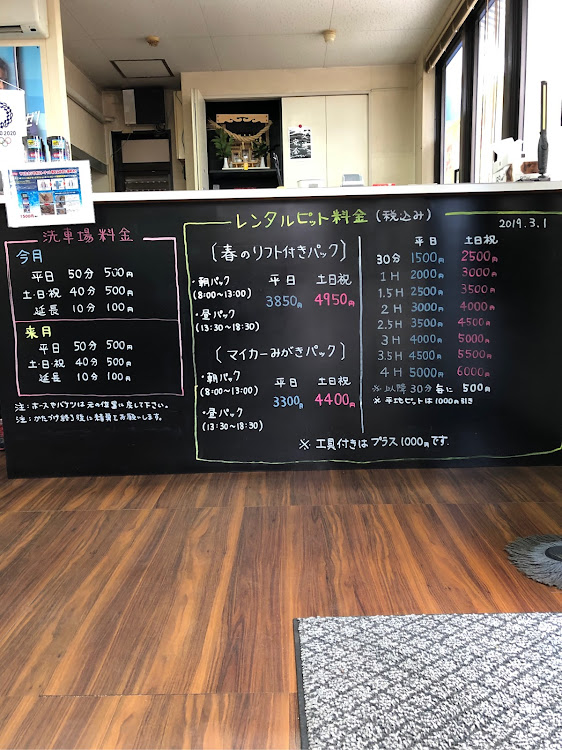 洗車場料金
今月
平日 50分 500円
土・日・祝 40分 500円
延長 10分 100円
来月
平日 50分 500円
土・日・祝 40分 500円
延長 10分 100円
注：ホースやバケツは元の位置に戻して下さい。
注：かたづけ終了後に精算をお願いします。
レンタルピット料金（税込み）
2019.3.1
〔春のリフト付きパック〕
平日 土日祝
・朝パック
(8:00〜13:00)
3850円 4950円
・昼パック
(13:30〜18:30)
〔マイカーみがきパック〕
・朝パック 平日 土日祝
(8:00〜13:00)
3300円 4400円
・昼パック
(13:30〜18:30)
平日 土日祝
30分 1500円 2500円
1H 2000円 3000円
1.5H 2500円 3500円
2H 3000円 4000円
2.5H 3500円 4500円
3H 4000円 5000円
3.5H 4500円 5500円
4H 5000円 6000円
※以降30分毎に 500円
※平地ピットは1000円引き
※工具付きはプラス1000円です.
2020
1500円